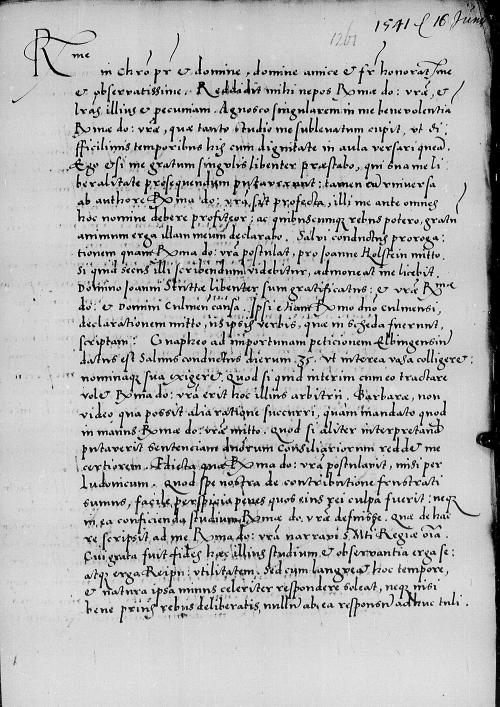 1541 16 Junii
1261
Rme
in Chro pr et domine, domine amice et fr honoratme
et observatissime. Reddidit mihi nepos Rmae do: vrae, et
lras illius et pecuniam. Agnosco singularem in me benevolentia
Rmae do: vrae, quae tanto studio me sublevatum cupit, ut di
fficilimis temporibus his cum dignitate in aula versari quea.
Ego etsi me gratum singulis libenter praestabo, qui sua me li
beralitate prosequendum putaverunt: tamen cu universa
ab authore Rma do: vra sit profecta, illi me ante omnes
hoc nomine debere profiteor: ac quibuscunque rebus potero, gratu
animum erga illam meum declarabo. Salvi conductus proroga
tionem quam Rma do: vra postulat, pro Joanne Holstein mitto.
Si quid secus illi scribendum videbitur, admoneat me licebit.
Domino Joanni libenter sum gratificatus: et vrae Rmae
do: et Domini Culmen causa. Ipsi etiam Rmo dno Culmensi,
declarationem mitto, iis ipsis verbis, quae in scheda fuerunt,
scriptam. Gnapheo ad importunam peticionem Elbingensiu
datus est Salvus conductus dierum 35. ut interea vasa colligere:
nominaque sua exigeret. Quod si quid interim cum eo tractare
volet Rma do: vra erit hoc illius arbitrii. Barbarae, non
video qua possit alia ratione succurri, quam mandato quod
in manus Rmae do: vrae mitto. Quod si aliter interpretand
putaverit sentenciam dnorum Consiliariorum reddet me
certiorem. Edicta quae Rma do: vra postulavit, misi per
Ludovicum. Quod spe nostra de contributione frustrati
sumus, facile perspicia penes quos eius rei culpa fuerit: neque
in ea conficienda studium Rmae do. vrae defuisse. Quae de hac
re scripsit ad me Rma do: vra narravi S. Mti Regiae oia.
Cui grata fuit fides haec illius studium et observantia erga se:
atque erga Reipu: utilitatem. Sed cum langueat hoc tempore,
et natura ipsa minus celeriter respondere soleat, neque nisi
bene prius rebus deliberatis, nullu ab ea responsu adhuc tuli.